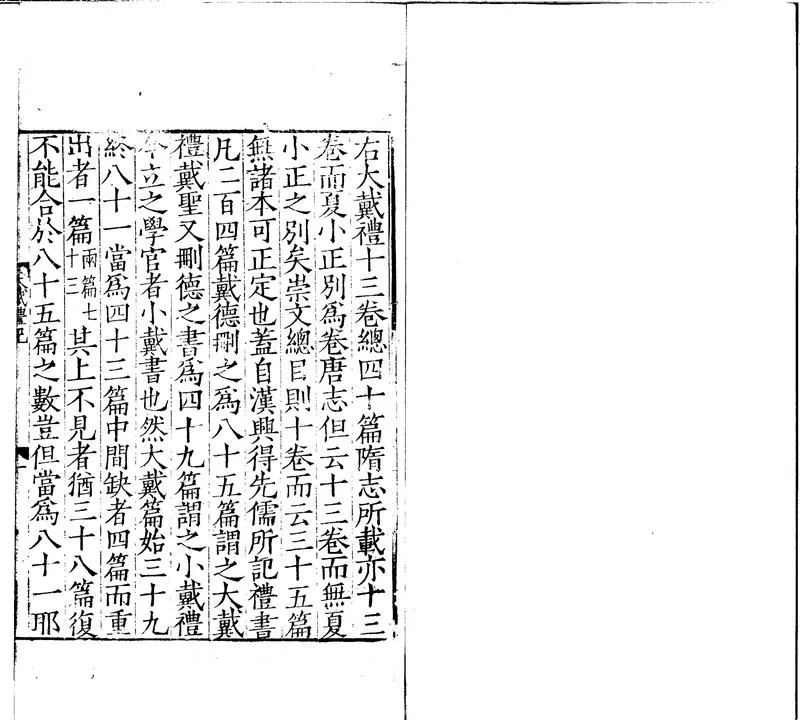 右大戴禮十三卷總四十篇隋志所載亦十三
卷而夏小正別爲卷唐志但云十三卷而無夏
小正之別矣崇文總目則十卷而云三十五篇
無諸本可正定也蓋自漢興得先儒所記禮書
凡二百四篇戴德刪之爲八十五篇謂之大戴
禮戴聖又刪德之書爲四十九篇謂之小戴禮
今立之學官者小戴書也然大戴篇始三十九
終八十一當爲四十三篇中間缺者四篇而重
出者一篇兩篇七十三其上不見者猶三十八篇復
不能合於八十五篇之數豈但當爲八十一耶
大戴禮記